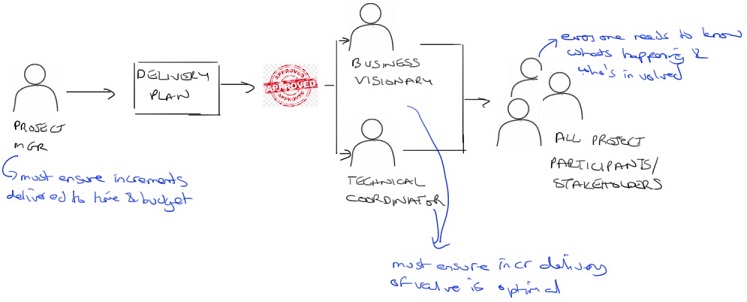 PROJECT
MGR
must ensure increments
delivered to time & budget
DELIVERY
PLAN
APPROVED
APPROVED
APPROVED
BUSINESS
VISIONARY
TECHNICAL
COORDINATOR
must ensure incr delivery
of value is optimal
everyone needs to know
what's happening &
who's involved
ALL PROJECT
PARTICIPANTS/
STAKEHOLDERS